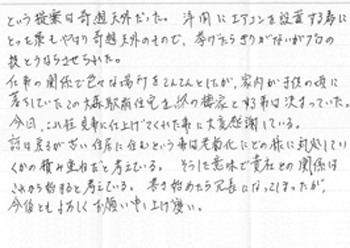 という提案は奇想天外だった。洋間にエアコンを設置する為に
とった策もやはり奇想天外のもので、挙げたらきりがないがプロの
技とうならせられた。
仕事の関係で色々な場所をてんてんとしたが、家内が子供の頃に
暮していたこの大森駅前住宅を終の棲家とする事は決まっていた。
今日、これ程見事に仕上げてくれた事に大変感謝している。
話は戻るが古い住居に住むという事は老朽化にどの様に対処してい
くかの積み重ねだと考えている。そうした意味で貴社との関係は
これから始まると考えている。書き始めたら冗長になってしまったが、
今後ともよろしくお願い申し上げ度い。